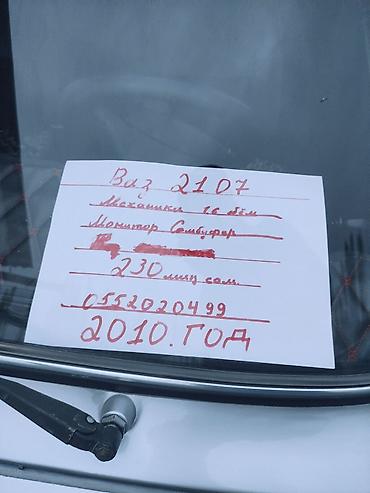 Ваз 2107
Механики 1.6 объм
Монитор Сембуфер
230 миң сом.
0552020499
2010.ГОД